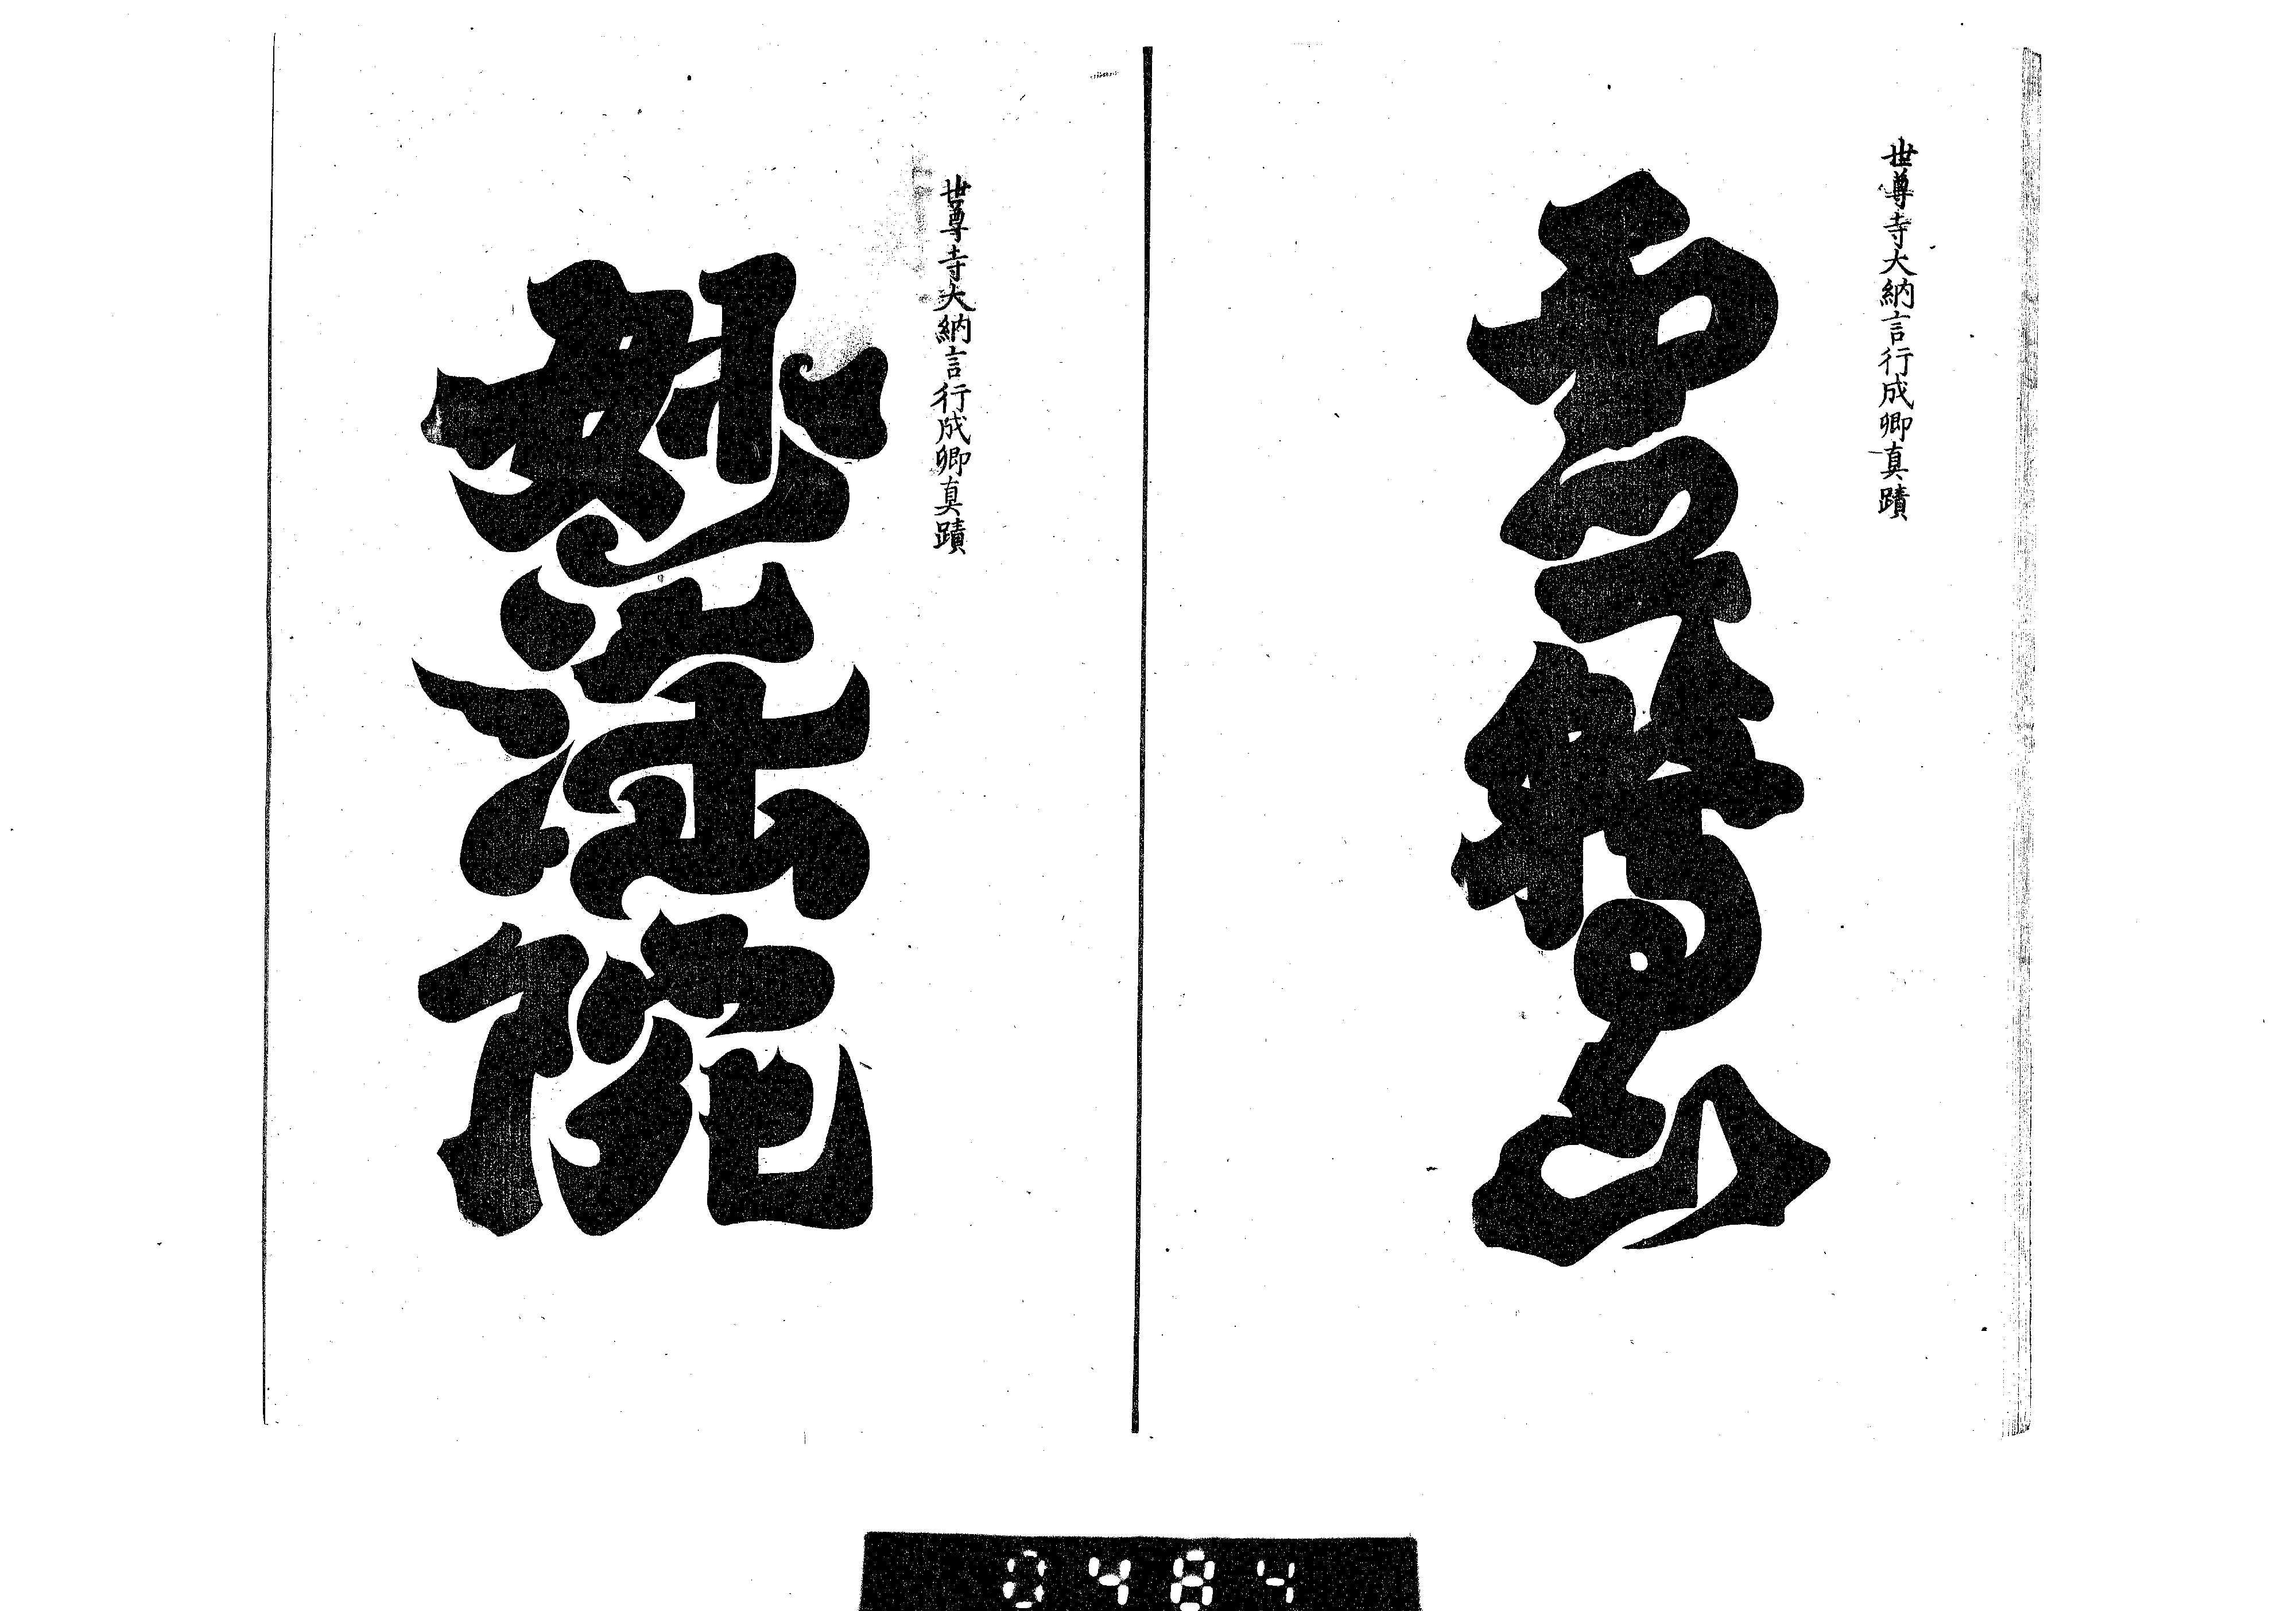 世尊寺大納言行成卿真蹟
霊鷲山
世尊寺大納言行成卿真蹟
妙法院
0484